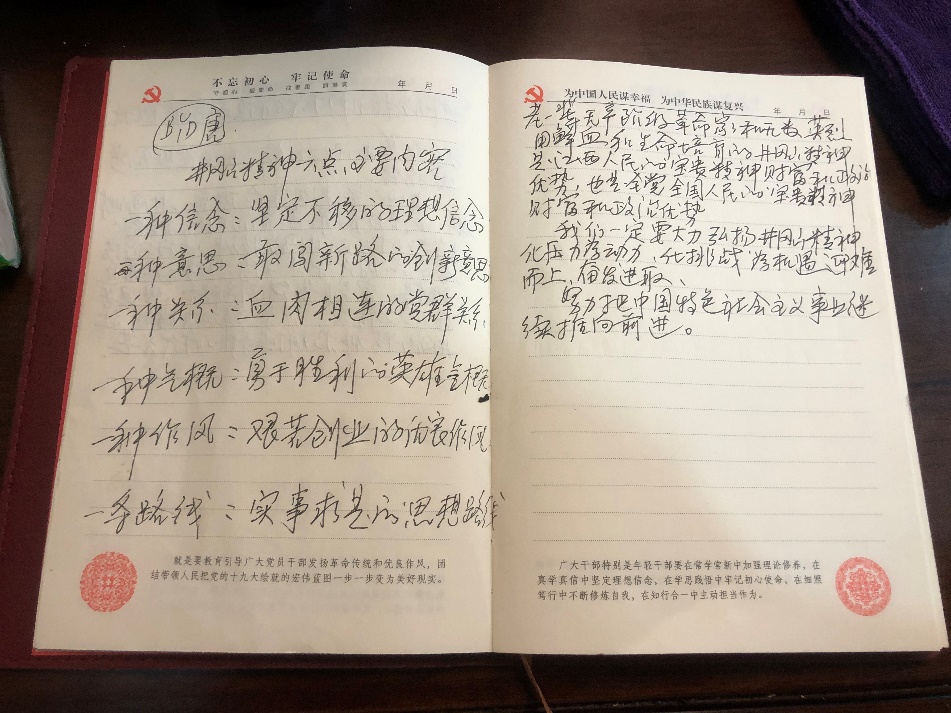 不忘初心 牢记使命
年 月 日
井冈山精神六点必要内容
一种信念：坚定不移的理想信念
一种意思：敢闯新路的创新意思
一种关系：血肉相连的党群关系
一种气概：勇于胜利的英雄气概
一种作风：艰苦创业的优良作风
一条路线：实事求是的思想路线
就是要教育引导广大党员干部发扬革命传统和优良作风，团
结带领人民把党的十九大绘就的宏伟蓝图一步一步变为美好现实。
为中国人民谋幸福 为中华民族谋复兴
年 月 日
老一辈无产阶级革命家和无数英烈
用鲜血和生命培育的井冈山精神
是江西人民的宝贵精神财富和政治
优势，也是全党全国人民的宝贵精神
财富和政治优势
我们一定要大力弘扬井冈山精神
化压力为动力，化挑战为机遇迎难
而上，奋发进取、
努力把中国特色社会主义事业继
续推向前进。
广大干部特别是年轻干部要在常学常新中加强理论修养，在
真学真信中坚定理想信念，在学思践悟中牢记初心使命，在细照
笃行中不断修炼自我，在知行合一中主动担当作为。